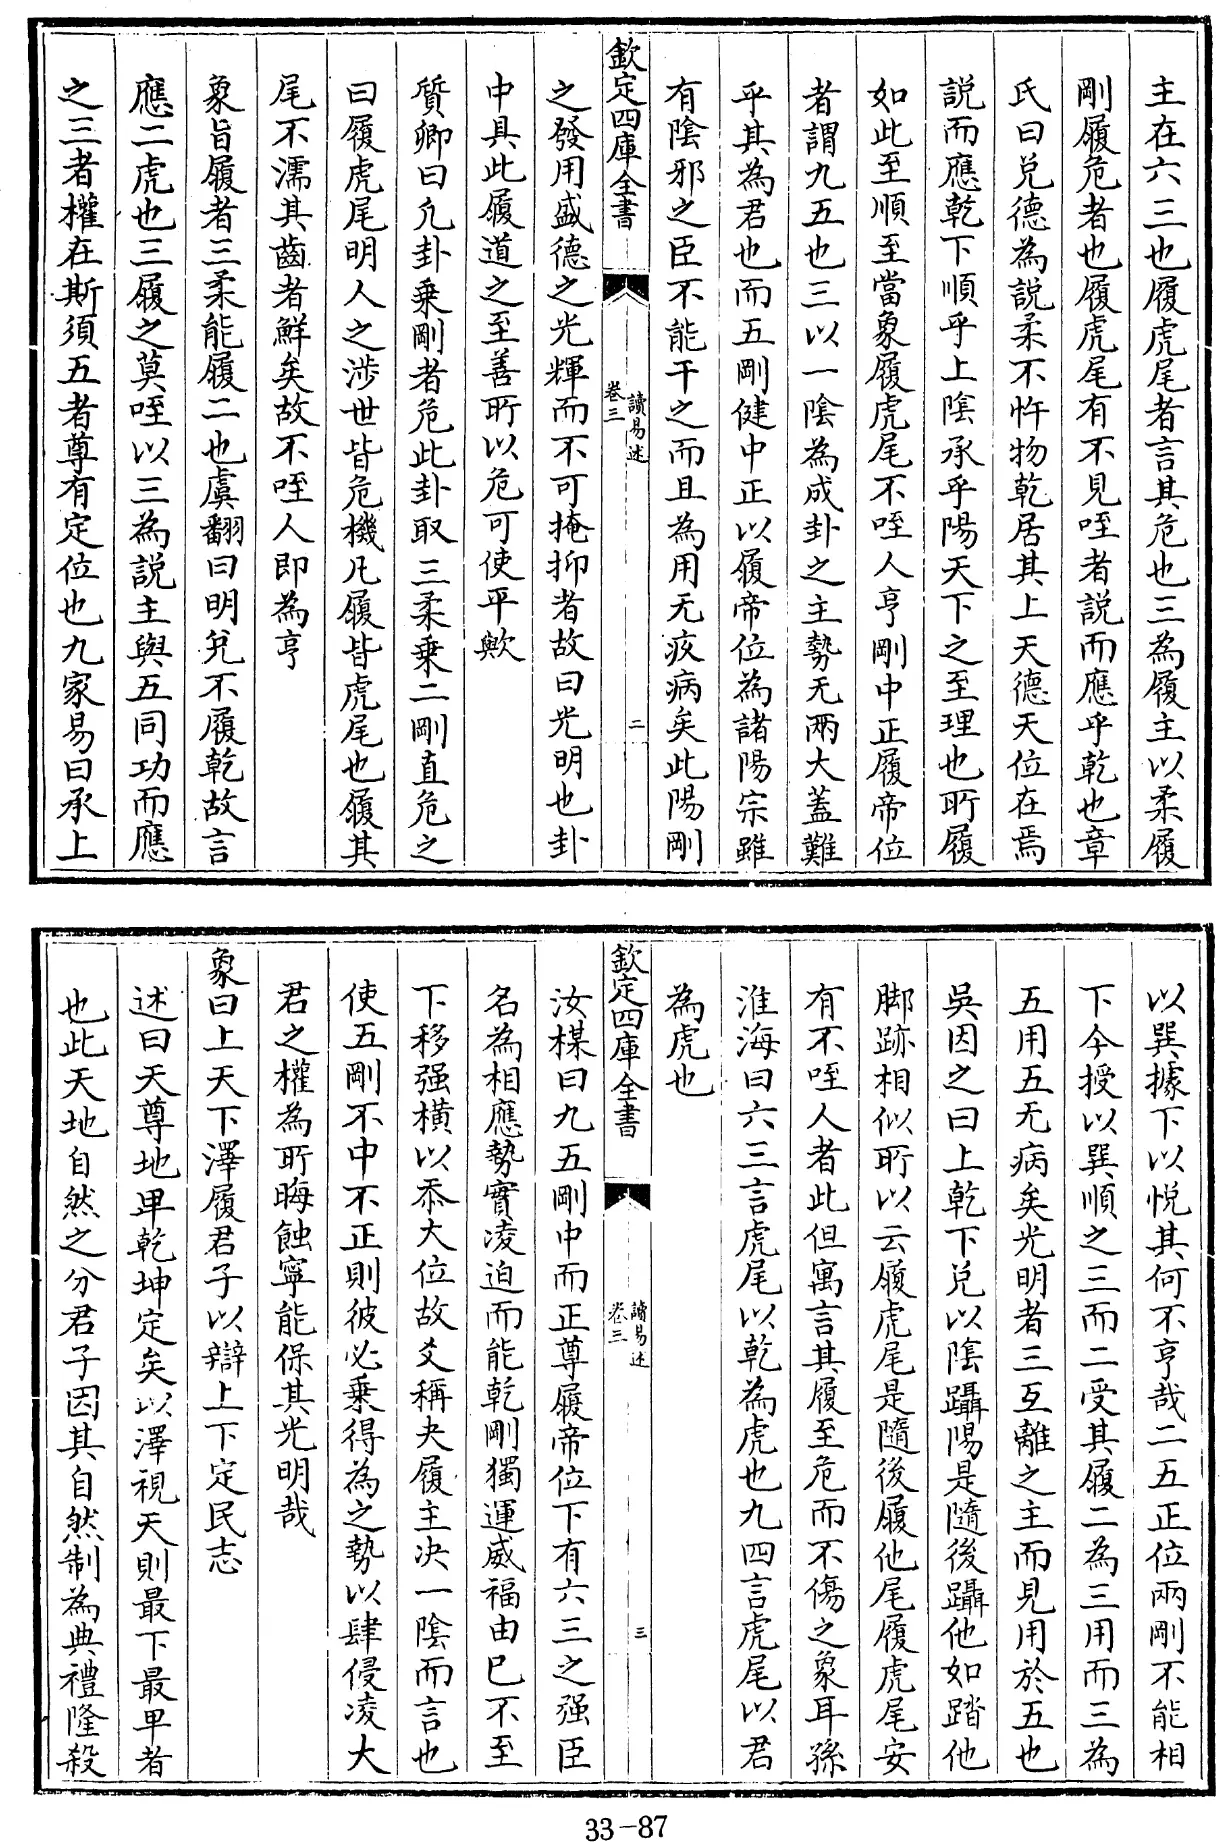 主在六三也履虎尾者言其危也三為履主以柔履
剛履危者也履虎尾有不見咥者説而應乎乾也章
氏曰兑德為説柔不忤物乾居其上天德天位在焉
説而應乾下順乎上陰承乎陽天下之至理也所履
如此至順至當象履虎尾不咥人亨剛中正履帝位
者謂九五也三以一陰為成卦之主勢无兩大蓋難
乎其為君也而五剛健中正以履帝位為諸陽宗雖
有陰邪之臣不能干之而且為用无疚病矣此陽剛
欽定四庫全書
讀易述
卷三
二
之發用盛德之光輝而不可掩抑者故曰光明也卦
中具此履道之至善所以危可使平歟
質卿曰凡卦乗剛者危此卦取三柔乗二剛直危之
曰履虎尾明人之涉世皆危機凡履皆虎尾也履其
尾不濡其齒者鮮矣故不咥人即為亨
象旨履者三柔能履二也虞翻曰明兑不履乾故言
應二虎也三履之莫咥以三為説主與五同功而應
之三者權在斯須五者尊有定位也九家易曰承上
以巽據下以悦其何不亨哉二五正位兩剛不能相
下今授以巽順之三而二受其履二為三用而三為
五用五无病矣光明者三互離之主而見用於五也
吳因之曰上乾下兑以陰躡陽是隨後躡他如踏他
脚跡相似所以云履虎尾是隨後履他尾履虎尾安
有不咥人者此但寓言其履至危而不傷之象耳孫
淮海曰六三言虎尾以乾為虎也九四言虎尾以君
為虎也
欽定四庫全書
讀易述
卷三
三
汝楳曰九五剛中而正尊履帝位下有六三之强臣
名為相應勢實凌迫而能乾剛獨運威福由已不至
下移强橫以忝大位故爻稱夬履主决一陰而言也
使五剛不中不正則彼必乗得為之勢以肆侵凌大
君之權為所晦蝕寧能保其光明哉
象曰上天下澤履君子以辯上下定民志
述曰天尊地卑乾坤定矣以澤視天則最下最卑者
也此天地自然之分君子因其自然制為典禮隆殺
33-87